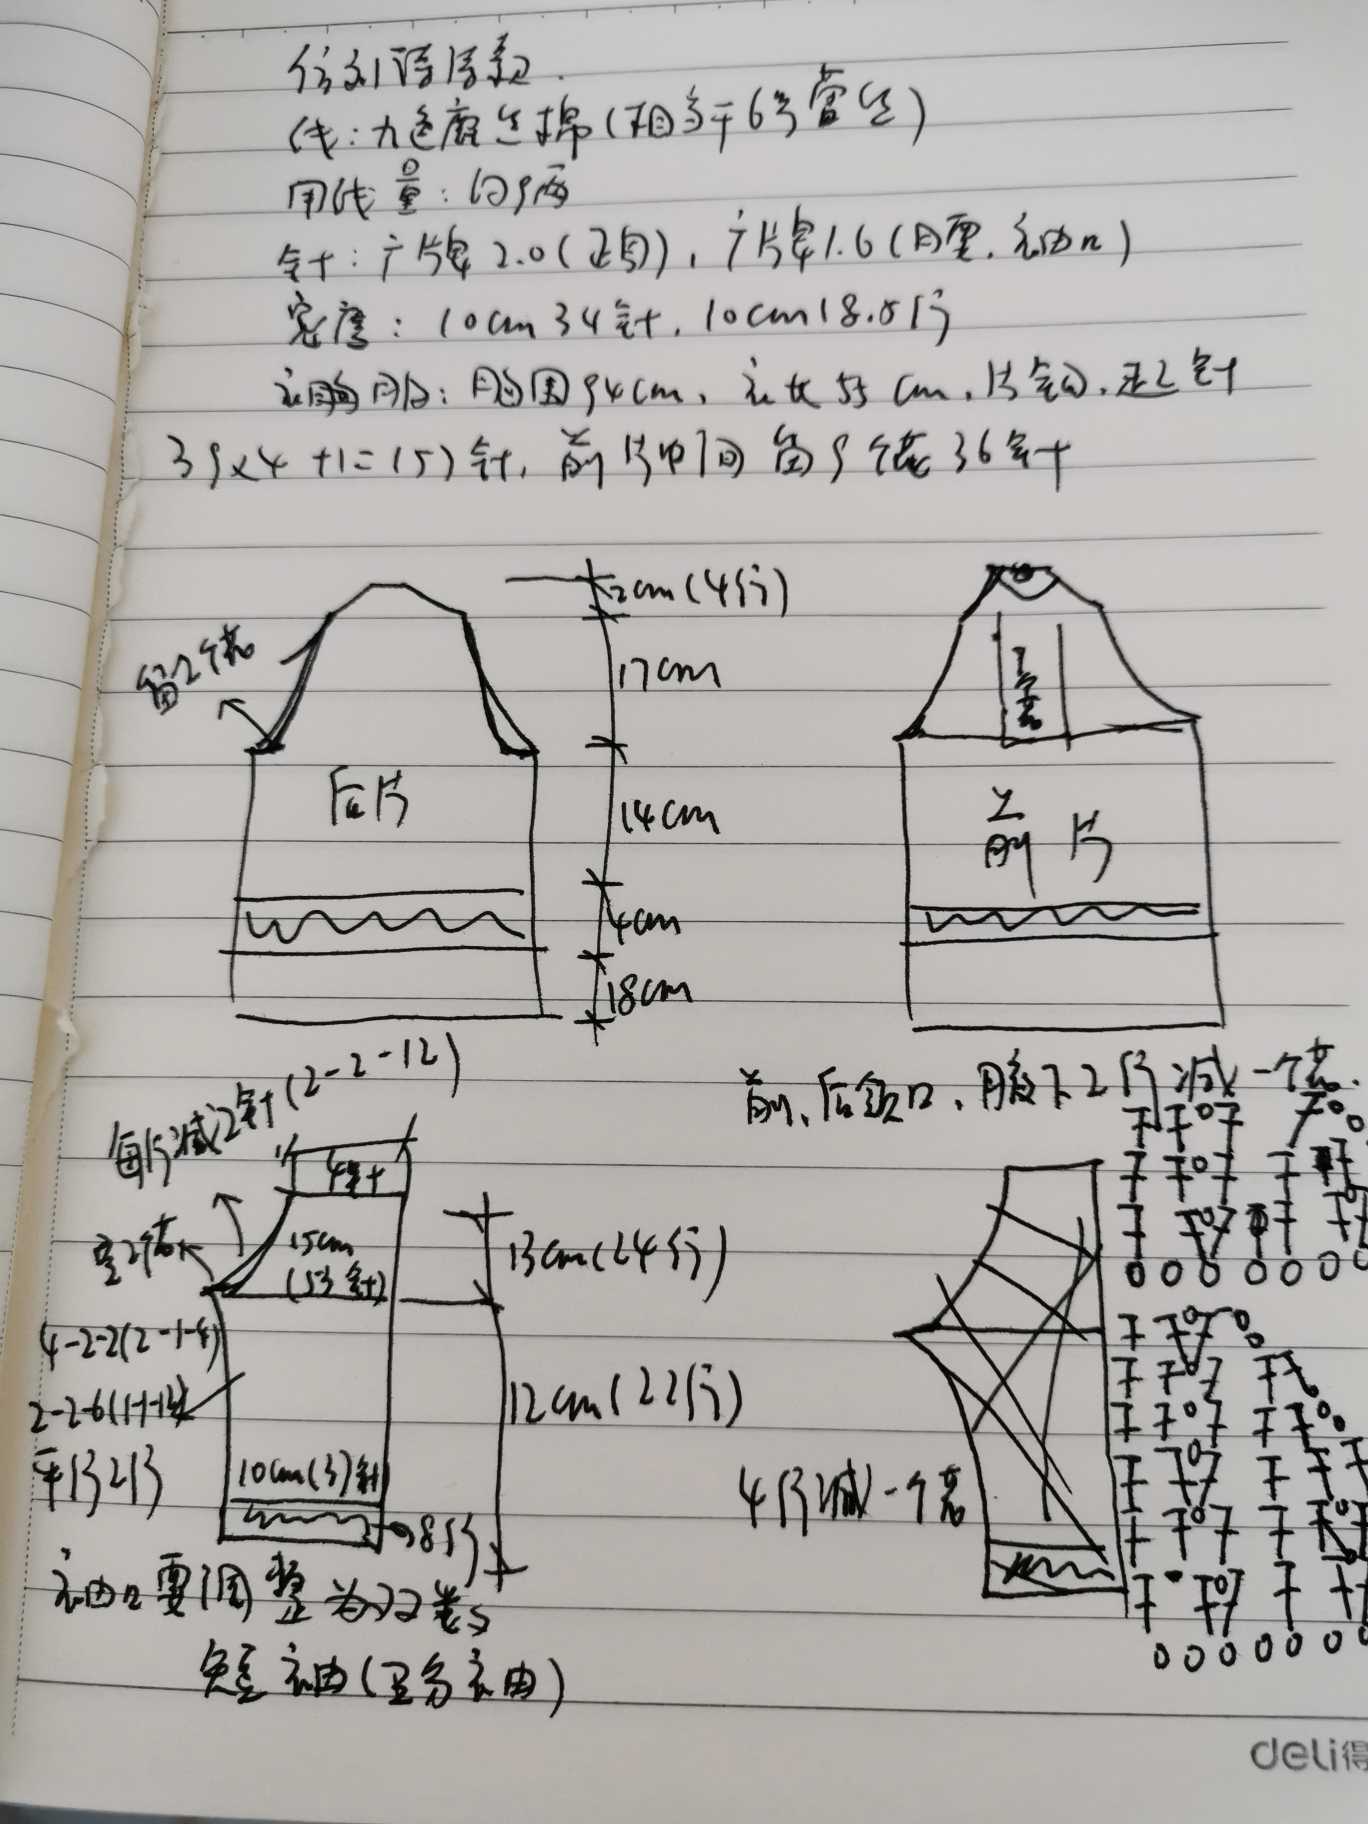 线:九色鹿生棉(相当于6号蕾丝)
用线量:约9两
针:广片牌2.0(正身),广片牌1.6(腰,袖口)
密度:10cm34针,10cm18.5行
胸围94cm,衣长55cm,片勾,起针
39x4+1=157针,前片中间留9个花36针
2cm(4行)
17cm
14cm
4cm
18cm
留2个花
后片
9个花
前片
前、后领口,腋下2行减一个花.
每行减2针(2-2-12)
4针
15cm
(53针)
13cm(24行)
4-2-2(2-1-4)
2-2-6(1-1-12)
平行2行
12cm(22行)
10cm(37针)
8行
4行减一个花
袖口要调整为
短袖(五分袖)
deli得